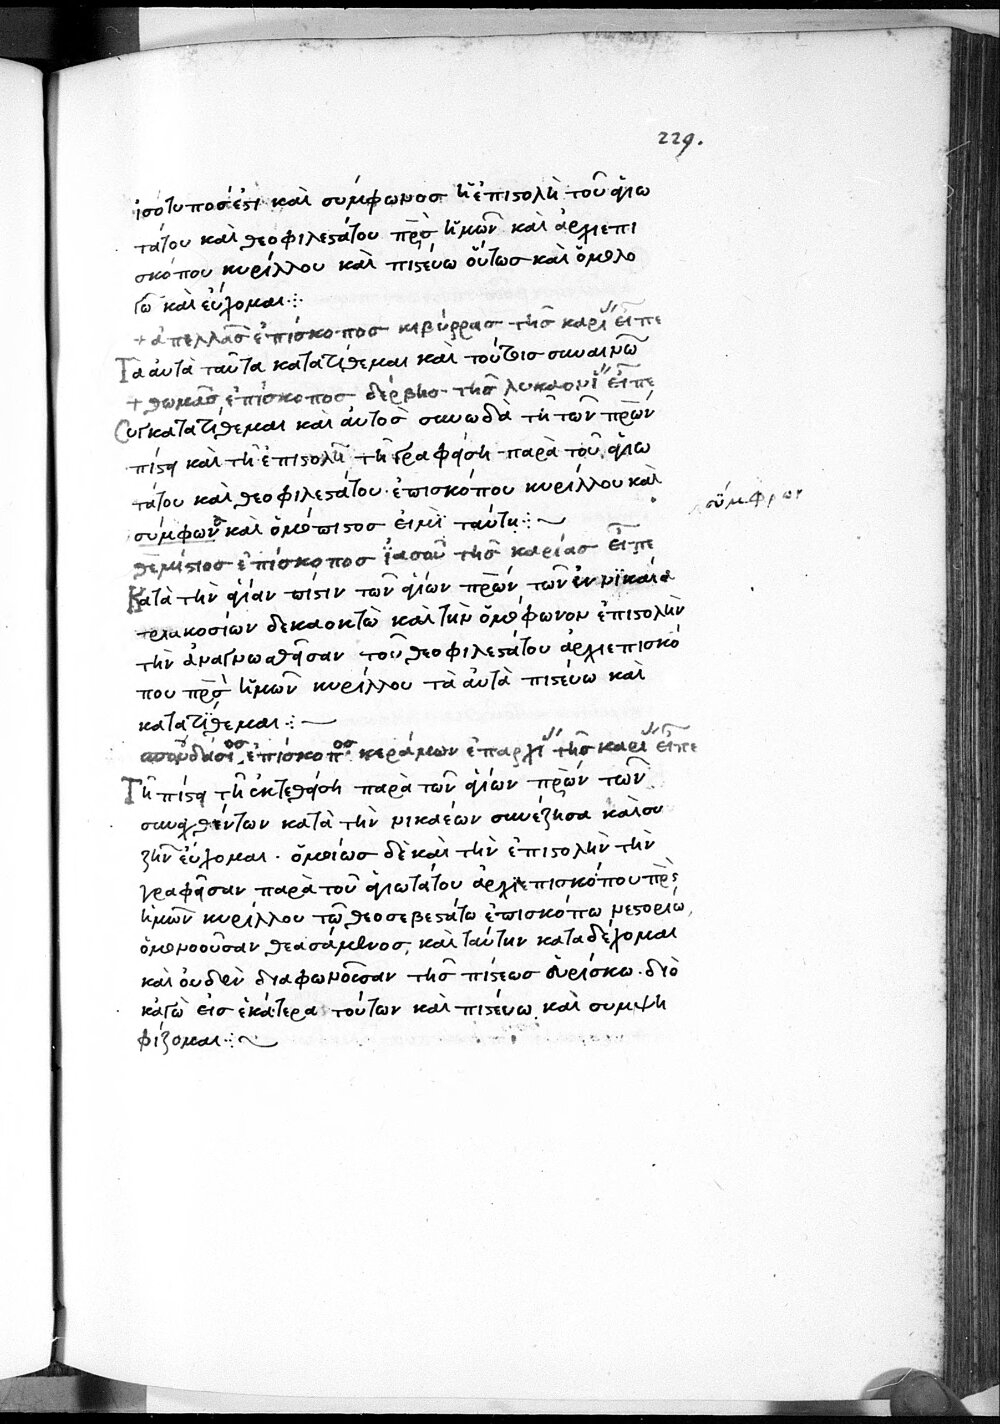 229.
ἰσότυπος ἐστὶ καὶ σύμφωνος ἡ ἐπιστολὴ τοῦ ἁγιω
τάτου καὶ θεοφιλεστάτου πρς ἡμῶν καὶ ἀρχιεπι
σκόπου κυρίλλου καὶ πιστεύω οὕτως καὶ ὁμολο
γῶ καὶ εὔχομαι
+ ἀπελλᾶς ἐπίσκοπος κιβύρρας τῆς καρι εἶπε
Τὰ αὐτὰ ταῦτα κατατίθεμαι καὶ τούτοις συναινῶ
+ θωμᾶς ἐπίσκοπος δέρβης τῆς λυκαονι εἶπε
Συγκατατίθεμαι καὶ αὐτὸς συνωδὰ τῆ τῶν πρων
πίστει καὶ τῆ ἐπιστολῆ τῆ γραφείση παρὰ τοῦ ἁγιω
τάτου καὶ θεοφιλεστάτου ἐπισκόπου κυρίλλου καὶ
σύμφρων
σύμφων καὶ ὁμόπιστος εἰμὶ ταύτη
θεμίστιος ἐπίσκοπος ἰασοῦ τῆς καρίας εἶπε
Κατὰ τὴν ἁγίαν πίστιν τῶν ἁγίων πρων τῶν ἐν νικαία
τριακοσίων δεκαοκτὼ καὶ τὴν ὁμόφωνον ἐπιστολὴν
τὴν ἀναγνωσθεῖσαν τοῦ θεοφιλεστάτου ἀρχιεπισκό
που πρς ἡμῶν κυρίλλου τὰ αὐτὰ πιστεύω καὶ
κατατίθεμαι
σπουδάσιος ἐπίσκοπος κεράμων ἐπαρχι τῆς καρι εἶπε
Τῆ πίστει τῆ ἐκτεθείση παρὰ τῶν ἁγίων πρων τῶν
συναχθέντων κατὰ τὴν νικαέων συνέζησα καὶ συ
ζῆν εὔχομαι. ὁμοίως δὲ καὶ τὴν ἐπιστολὴν τὴν
γραφεῖσαν παρὰ τοῦ ἁγιωτάτου ἀρχιεπισκόπου πρς
ἡμῶν κυρίλλου τῶ θεοσεβεστάτω ἐπισκόπω νεστορίω,
ὁμονοοῦσαν θεασάμενος, καὶ ταύτην καταδέχομαι
καὶ οὐδὲν διαφωνοῦσαν τῆς πίστεως εὑρίσκω. διὸ
κἀγὼ εἰς ἑκάτερα τούτων καὶ πιστεύω καὶ συμψη
φίζομαι